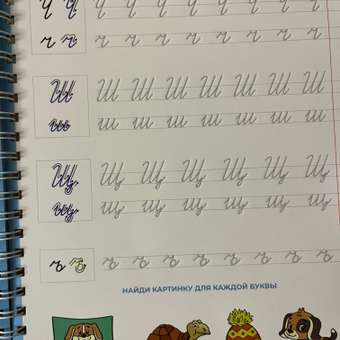 Ч Ч Ч Ч Ч Ч Ч Ч Ч Ч Ч
ч ч ч ч ч ч ч ч ч ч ч
Ш Ш Ш Ш Ш Ш Ш Ш Ш
ш ш ш ш ш ш ш ш ш
Щ Щ Щ Щ Щ Щ Щ Щ
щ щ щ щ щ щ щ щ
ъ ъ ъ ъ ъ ъ ъ ъ ъ ъ
НАЙДИ КАРТИНКУ ДЛЯ КАЖДОЙ БУКВЫ